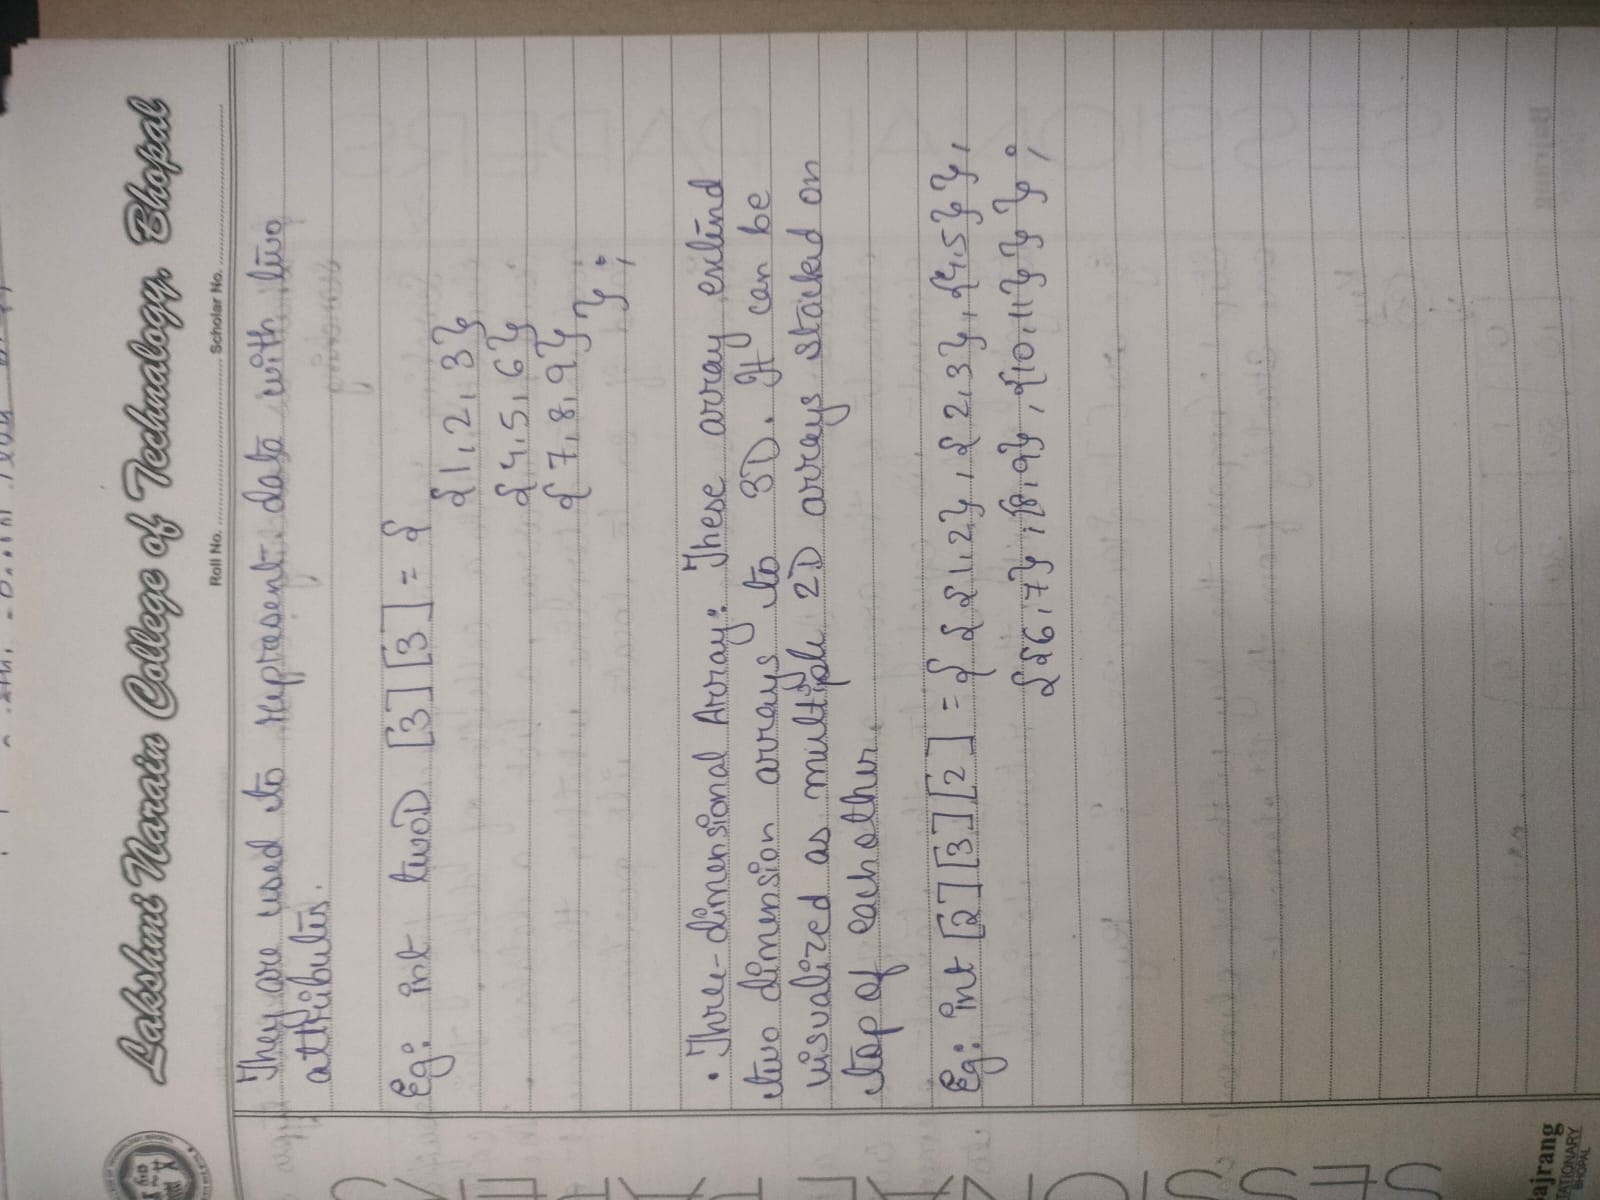 Lakshmi Narain College of Technalogy, Bhopal
Roll No. Scholar No.
They are used to represent data with two
attributes.
Eg: int twoD [3][3] = {
{1,2,3}
{4,5,6}
{7,8,9}
};
• Three-dimensional Array: These array extend
two dimension arrays to 3D. It can be
visualized as multiple 2D arrays stacked on
top of each other.
Eg: int [2][3][2] = { { {1,2}, {2,3}, {4,5} },
{ {6,7}, {8,9}, {10,11} } };
SESSIONAL PAPERS
Bajrang
STATIONARY
BHOPAL